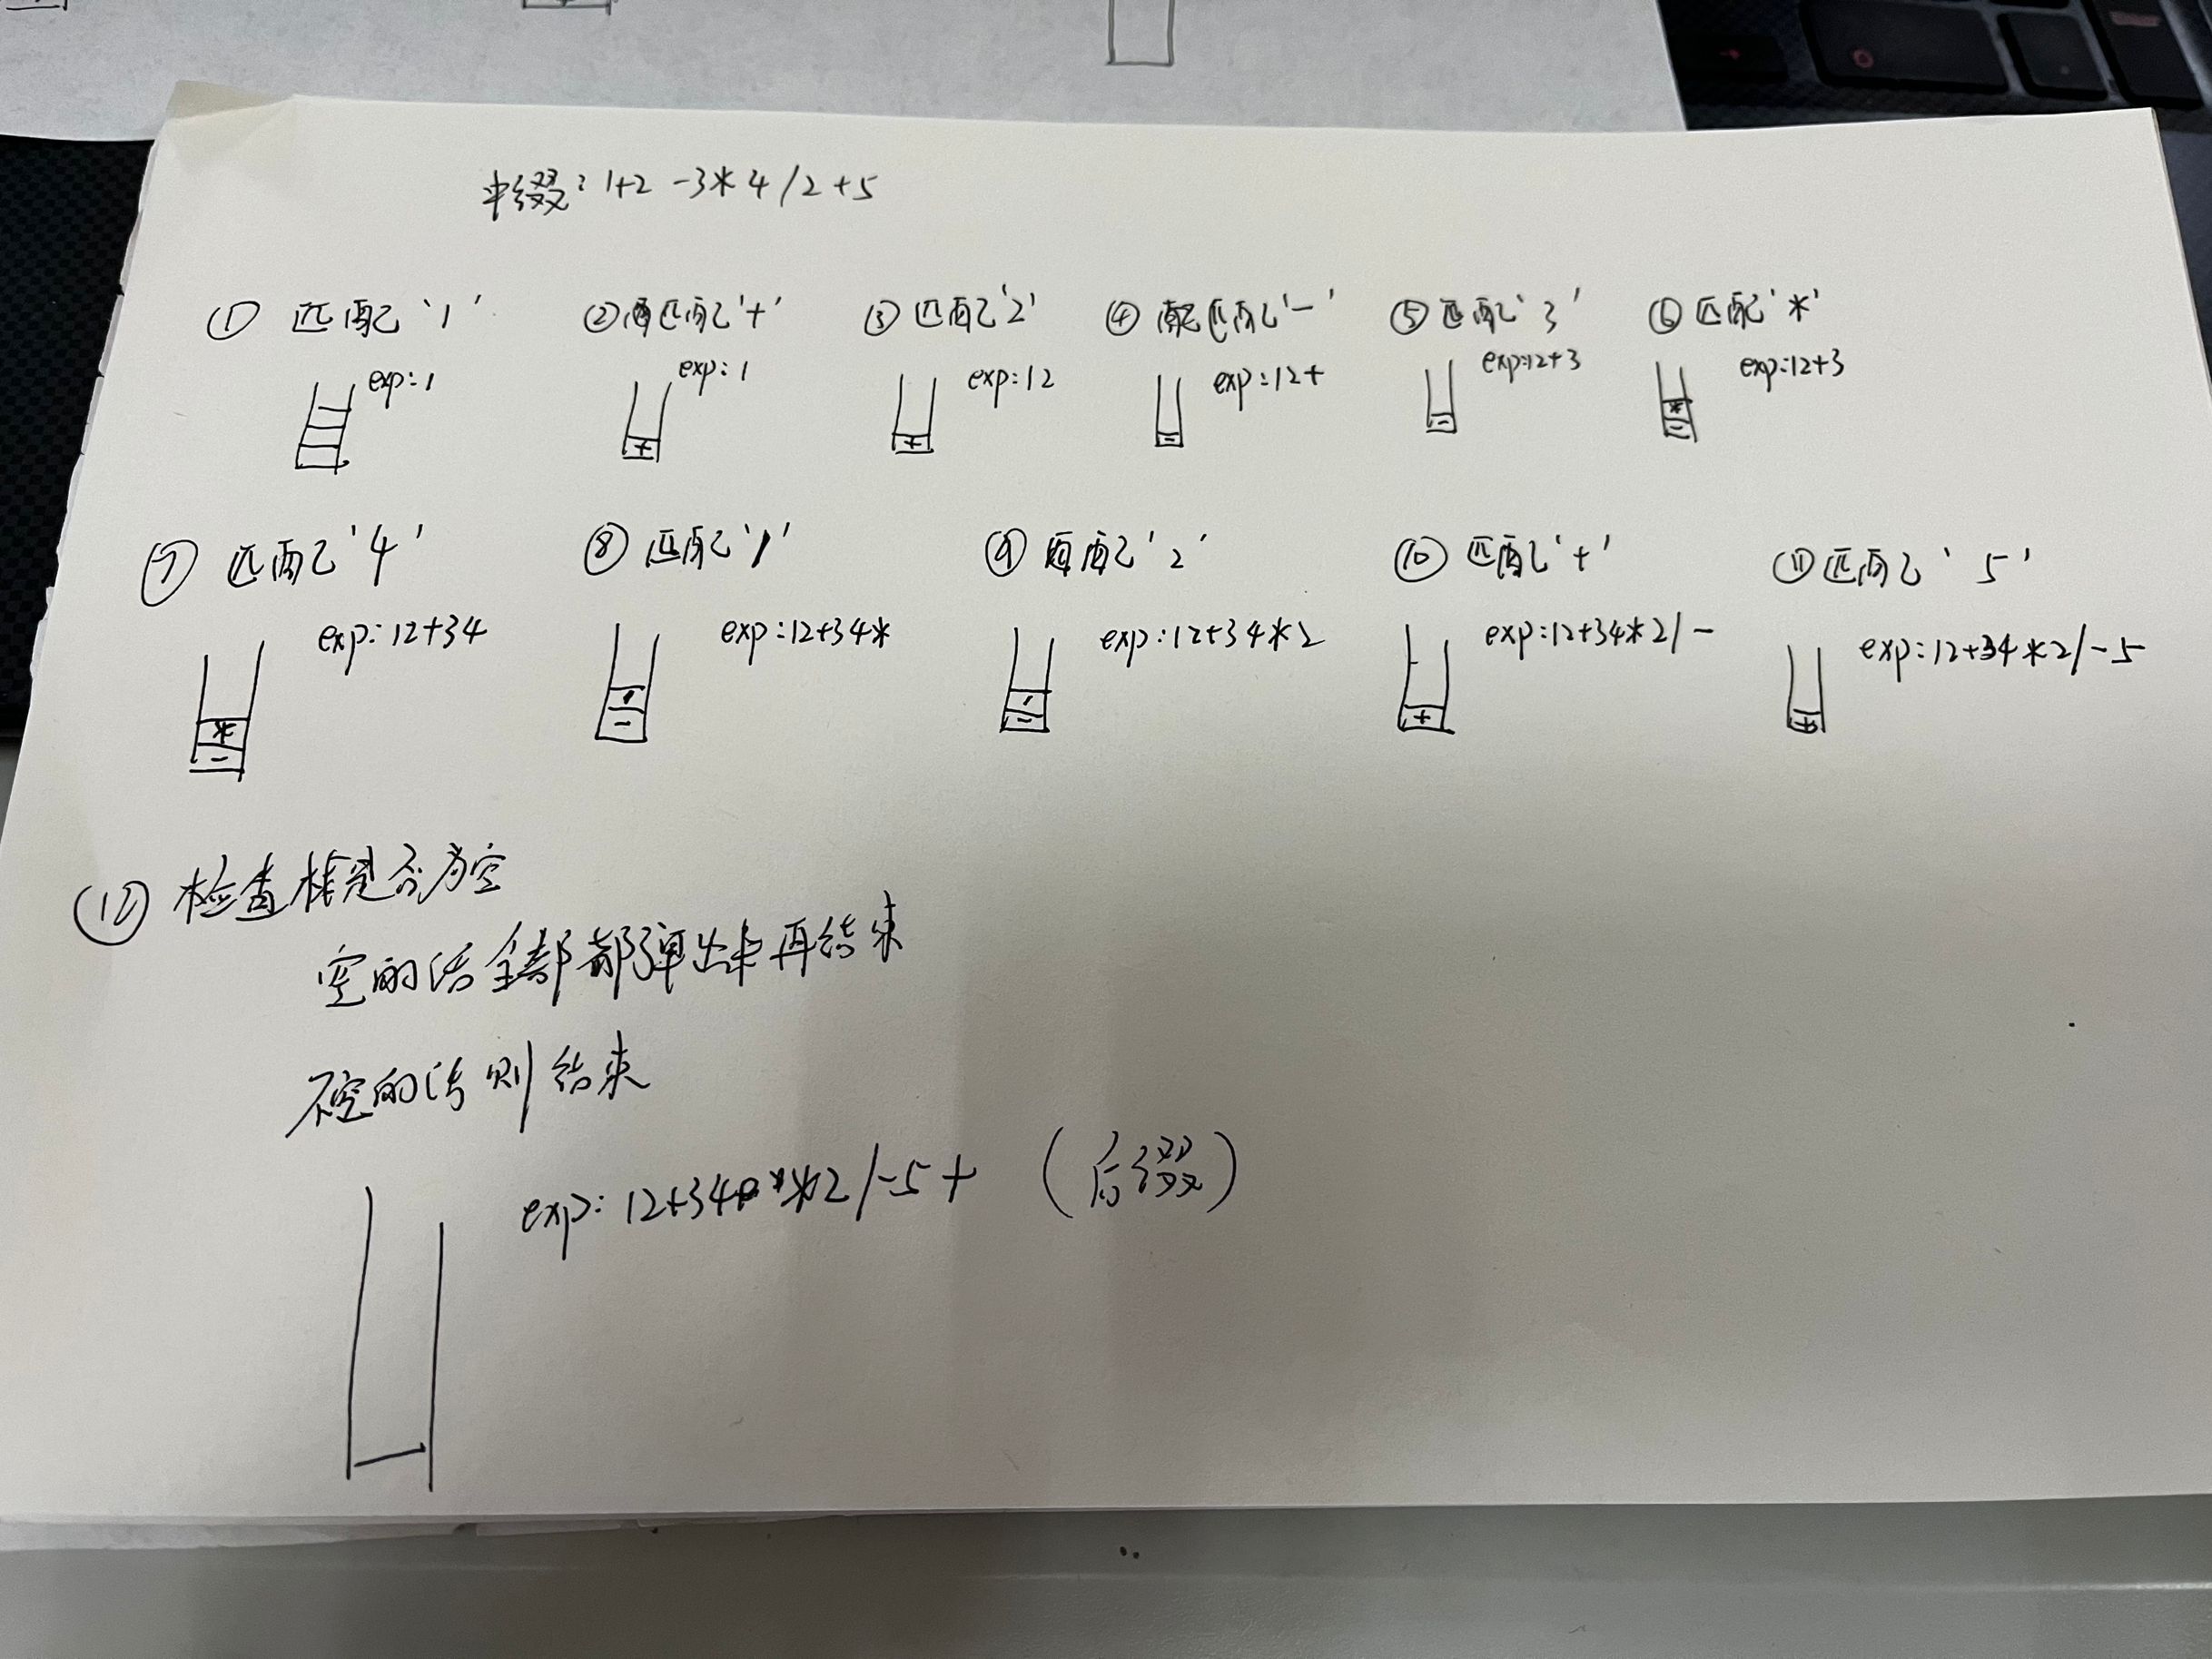 中缀：1+2-3*4/2+5
① 匹配'1' ②匹配'+' ③匹配'2' ④匹配'-' ⑤匹配'3' ⑥匹配'*'
exp:1 exp:1 exp:12 exp:12+ exp:12+3 exp:12+3
+ + - - * -
⑦ 匹配'4' ⑧匹配'/' ⑨匹配'2' ⑩匹配'+' ⑪匹配'5'
exp:12+34 exp:12+34* exp:12+34*2 exp:12+34*2/- exp:12+34*2/-5
* - / - / - + +
⑫检查栈是否为空
空的话全部都弹出来再结束
不空的话则结束
exp:12+34*2/-5+ (后缀)